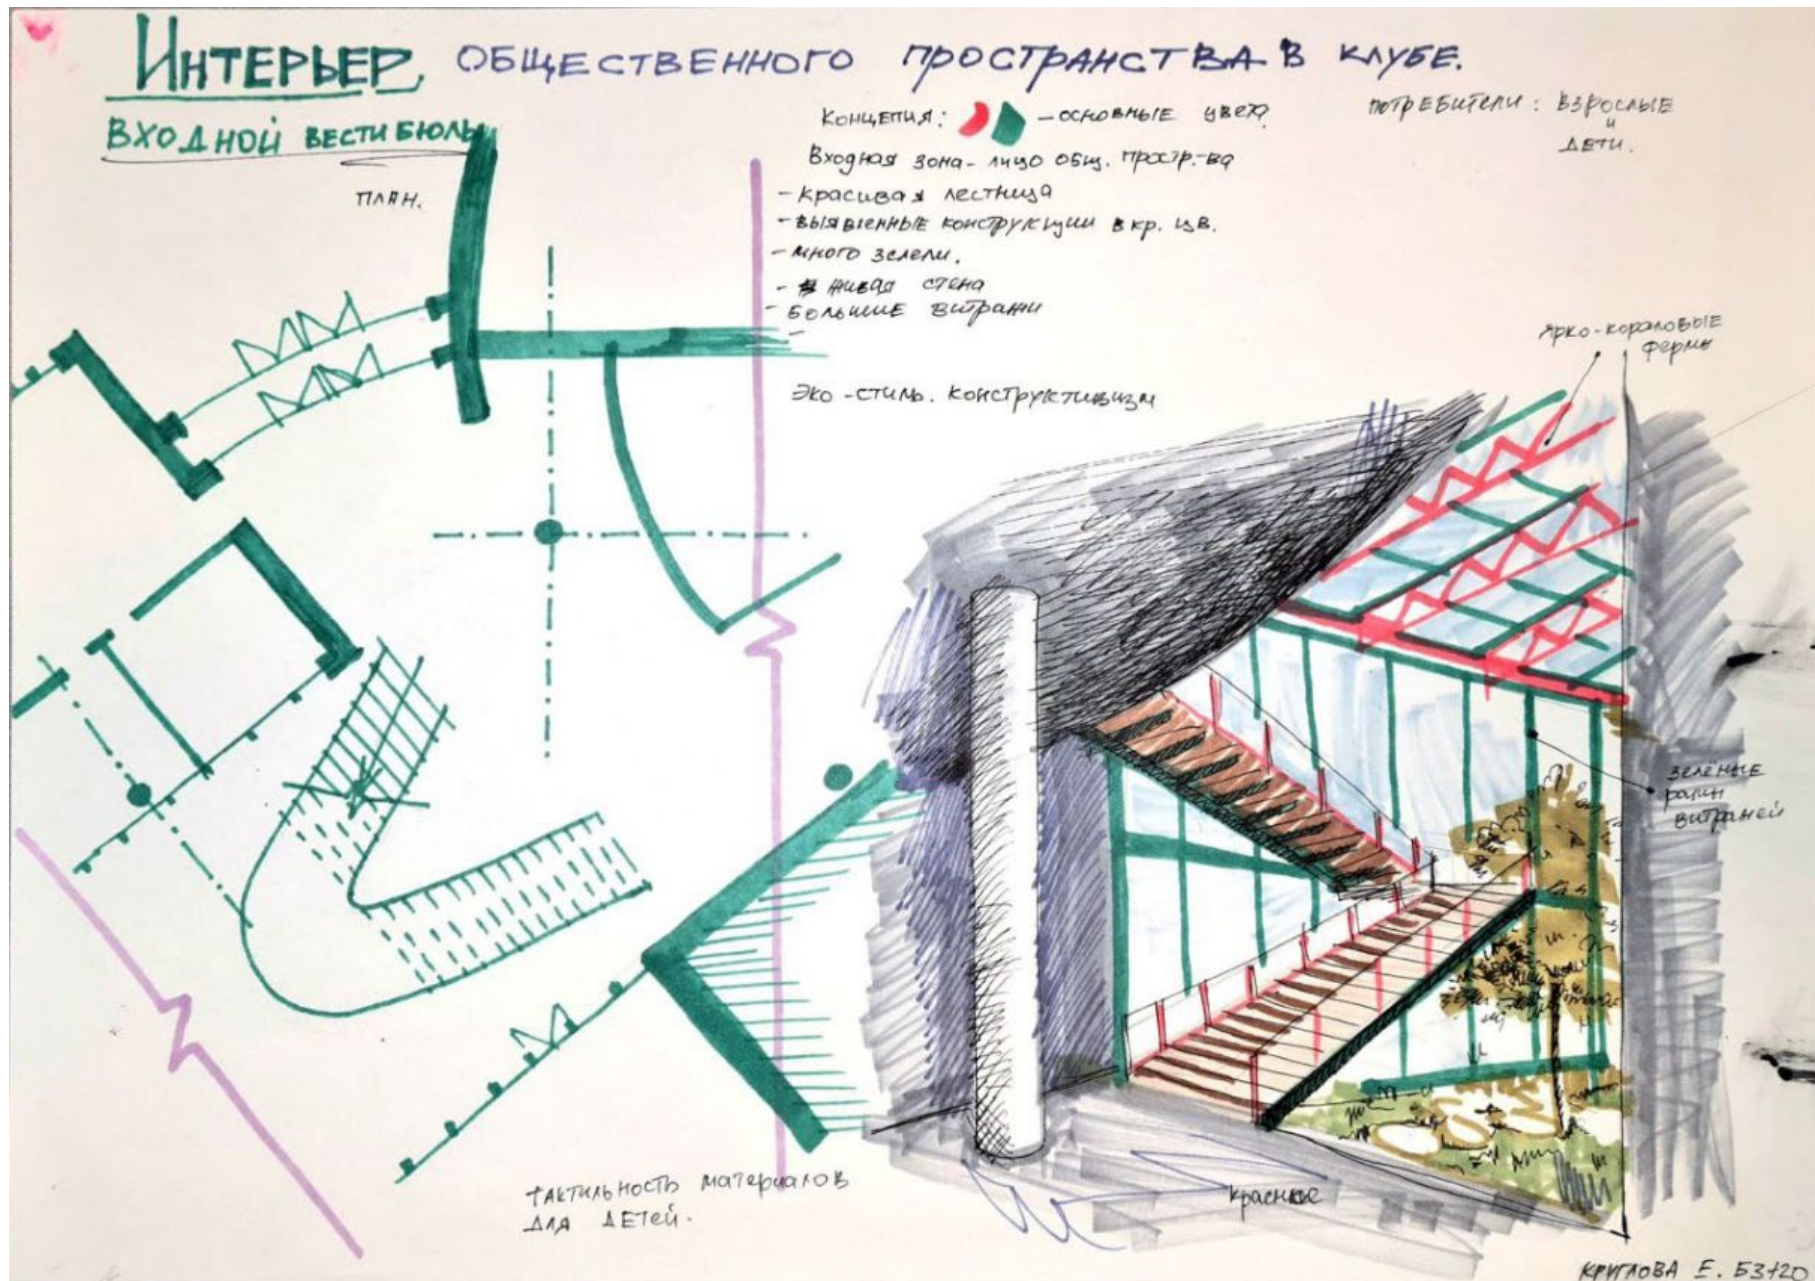 ИНТЕРЬЕР ОБЩЕСТВЕННОГО ПРОСТРАНСТВА В КЛУБЕ.
ВХОДНОЙ ВЕСТИБЮЛЬ
ПЛАН.
КОНЦЕПИЯ: – ОСНОВНЫЕ ЦВЕТА
ПОТРЕБИТЕЛИ: ВЗРОСЛЫЕ
И
ДЕТИ.
Входная зона - лицо общ. простр.-ва
- красивая лестница
- выявленные конструкции в кр. цв.
- много зелени.
- живая стена
- большие витражи
ЭКО-СТИЛЬ. КОНСТРУКТИВИЗМ
ярко-кораловые
фермы
зелёные
рамы
витражей
красные
ТАКТИЛЬНОСТЬ МАТЕРИАЛОВ
ДЛЯ ДЕТЕЙ.
КРУГЛОВА Е.